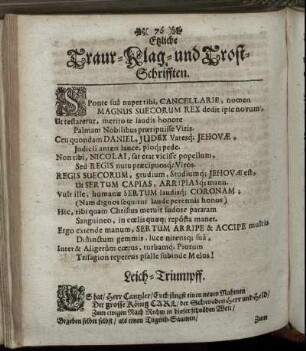 76
Etzliche
Traur-Klag-und Trost-
Schrifften.
SPonte suâ nuper tibi, CANCELLARIE, nomen
MAGNUS SUECORUM REX dedit ipse novum,
Ut testaretur, merito te laudis honore
Palmam Nobilibus præripuisse Viris.
Ceu quondam DANIEL, JUDEX Vatesq; JEHOVÆ,
Judicii antera lance, pioq; pede.
Non tibi, NICOLAI, sat erat vicisse popellum,
Sed REGIS nutu præcipuosq; Viros.
REGIS SUECORUM, studium, Studiumq; JEHOVÆ est,
Ut SERTUM CAPIAS, ARRIPIASq; manu.
Vult iste, humanæ SERTUM laudisq; CORONAM;
(Nam dignos sequitur laude perennis honos)
Hic, tibi quam Christus meruit sudore pararam
Sanguineo, in cœlis quæq; repôsta manet.
Ergo extende manum, SERTUM ARRIPE & ACCIPE multis
Distinctum gemmis, luce nitensq; suâ,
Inter & Aligerûm cœtus, turbamq; Piorum
Trisagion repetens psalle subinde Melus!
Leich-Triumpff.
EShat/ Herr Cantzler/ Euch jüngst einen neuen Nahmen
Der grosse König CARL/ der Schweden Herr und Held/
Zum ewigen Nach-Ruhm in dieser schnöden Welt/
Gegeben selber selbst/ als einen Tugend-Saamen/
Zum